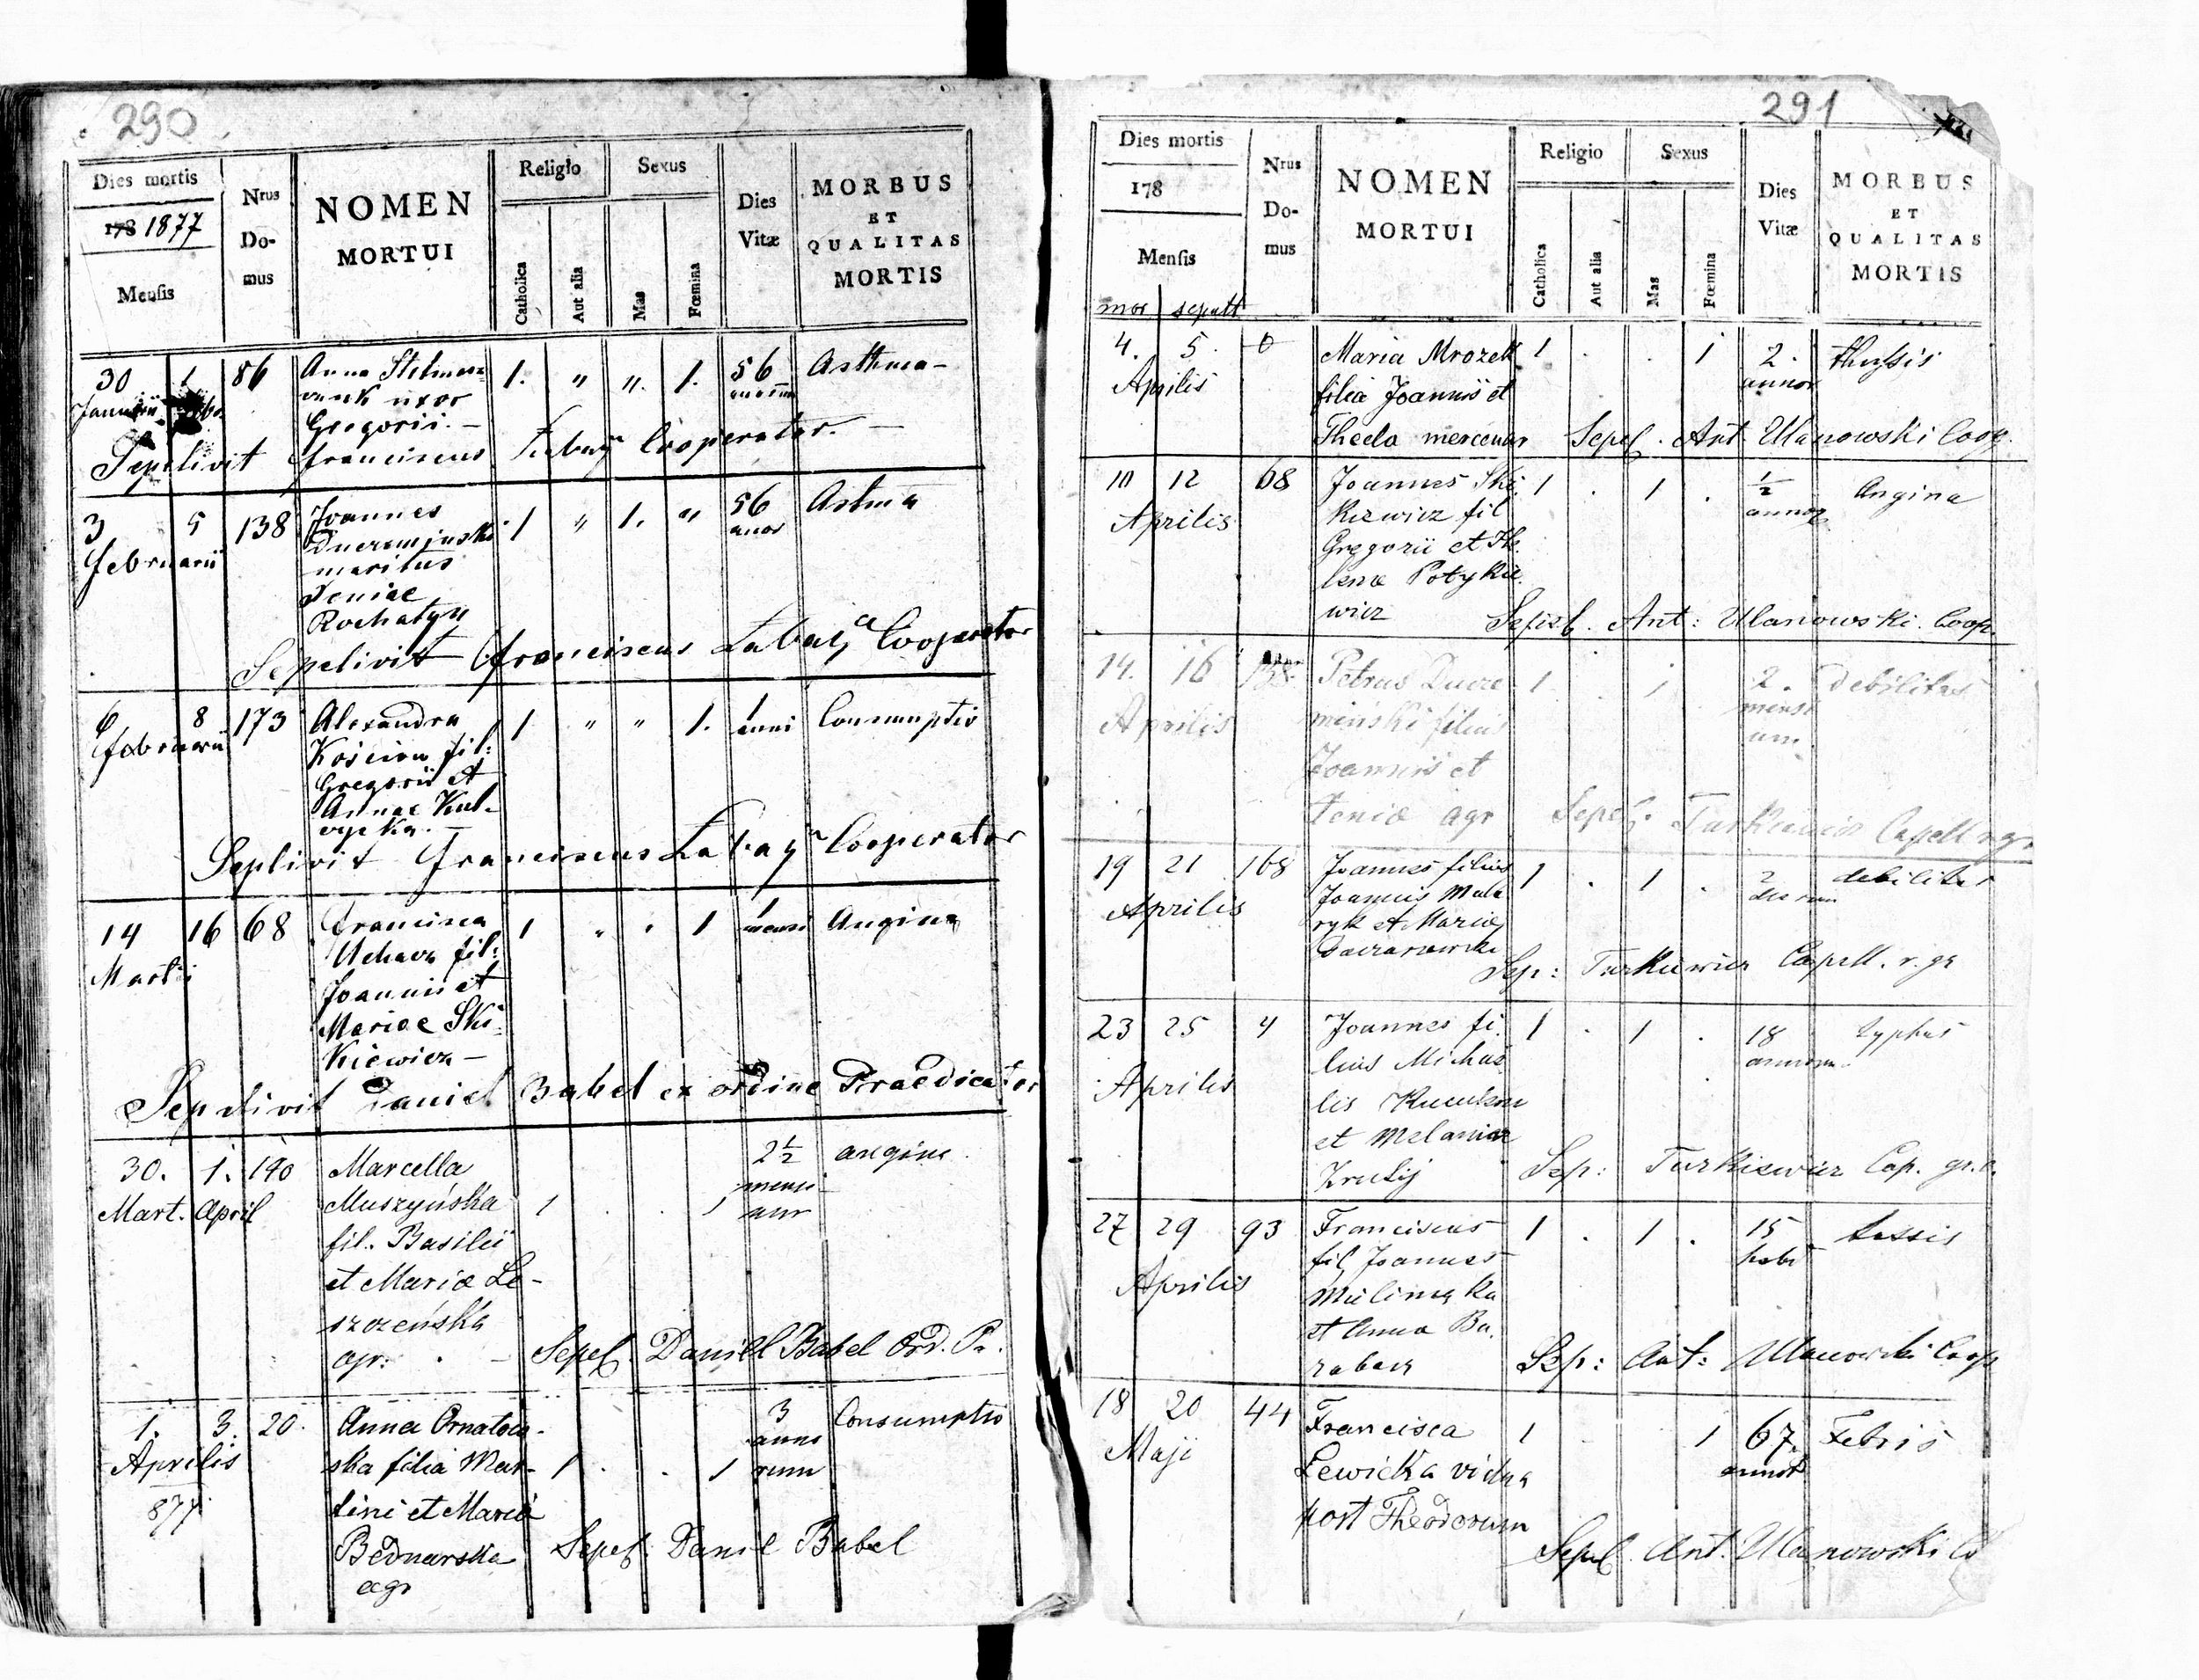 290
Dies mortis
178 1877
Mensis
Nrus
Do-
mus
NOMEN
MORTUI
Religio
Catholica
Aut alia
Sexus
Mas
Fœmina
Dies
Vitæ
MORBUS
ET
QUALITAS
MORTIS
30 1 86 Anna 1. " ". 1. 56 Asthma-
Januarii uxor
Gregorii.-
Sepelivit Franciscus Cooperator.-
3 5 138 Joannes 1 " 1. " 56 Astma
Februarii annor
maritus
Xeniae
Rochatyn
Sepelivit Franciscus Cooperator
6 8 173 Alexandra 1 " " 1. 1 Consumptio
Februarii fil: anni
Gregorii et
Annae Kul-
Seplivit Franciscus Cooperator
14 16 68 Francisca 1 " " 1 1 Angina
Martii fil: mensi
Joannis et
Mariae Ski-
Kiewicz-
Sepelivit Daniel Babel ex ordine Praedicator
30. 1. 190 Marcella 2½ angina.
Mart. April Muszyńska 1 . . 1 mensi
fil. Basilii
et Mariæ Le-
szczeńska
agr: . - Sepel. Daniel Babel Ord. Pr.
1. 3. 20. Anna 3 Consumptio
Aprilis ska filia Mar- 1 . . 1 anno
877. tini et Mariæ rum
Bednarska Sepel. Daniel Babel
agr
291
Dies mortis
178
Mensis
mor sepult
Nrus
Do-
mus
NOMEN
MORTUI
Religio
Catholica
Aut alia
Sexus
Mas
Fœmina
Dies
Vitæ
MORBUS
ET
QUALITAS
MORTIS
4. 5. 0 Maria Mrozek 1 . . 1 2. thussis
Aprilis filia Joannis et annor
Thecla mercenar Sepel. Ant Ulanowski Coop.
10 12 68 Joannes Ski- 1 . 1 . ½ Angina
Aprilis Kiewicz fil annor
Gregorii et He-
lenæ Potykie
wicz Sepel. Ant: Ulanowski. Coop.
14. 16 Petrus Ducze 1 . 1 2. Debilitas
Aprilis miński filius mensi
Joannis et um
Xeniæ agr Sepel. Turkiewicz Capell r.gr.
19 21 168 Joannes filius 1 . 1 . 2 debilitas
Aprilis Joannis Mala dierum
ryk et Mariæ
Sep: Turkiewicz Capell. r. gr
23 25 4 Joannes fi- 1 . 1 . 18 typhus
Aprilis lius Michae annorum
lis
et Melaniæ
Sep: Turkiewicz Cap. gr. r.
27 29 93 Franciscus 1 . 1 . 15 tussis
Aprilis fil Joannes
et Anna Ba-
Sep: Ant: Ulanowski Coop
18 20 44 Francisca 1 . . 1 67. Febris
Maji Lewicka vidua annor
post Theodorum
Sepel. Ant. Ulanowski Co